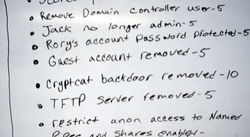 • Remove Domain Controller user-5
• Jack no longer admin-5
• Rory's account Password protected-5
• Guest account removed-5
• Cryptcat backdoor removed-10
• TFTP Server removed-5
• restrict anon access to Named
and Shares enabled-